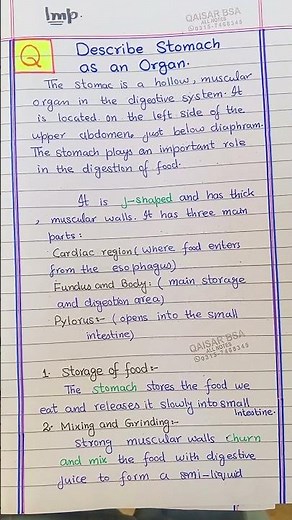 Imp.
QAISAR BSA
ALL NOTES
0315-7468343
Q
Describe Stomach
as an Organ.
The stomac is a hollow, muscular
organ in the digestive system. It
is located on the left side of the
upper abdomen, just below diaphram.
The stomach plays an important role
in the digestion of food.
It is J-shaped and has thick
, muscular walls. It has three main
parts:
Cardiac region (where food enters
from the esophagus)
Fundus and Body: (main storage
and digestion area)
Pylorus:- (opens into the small
intestine)
QAISAR BSA
ALL NOTES
0315-7468343
1. Storage of food:-
The stomach stores the food we
eat and releases it slowly into small
Intestine.
2. Mixing and Grinding:-
Strong muscular walls churn
and mix the food with digestive
juice to form a semi-liquid